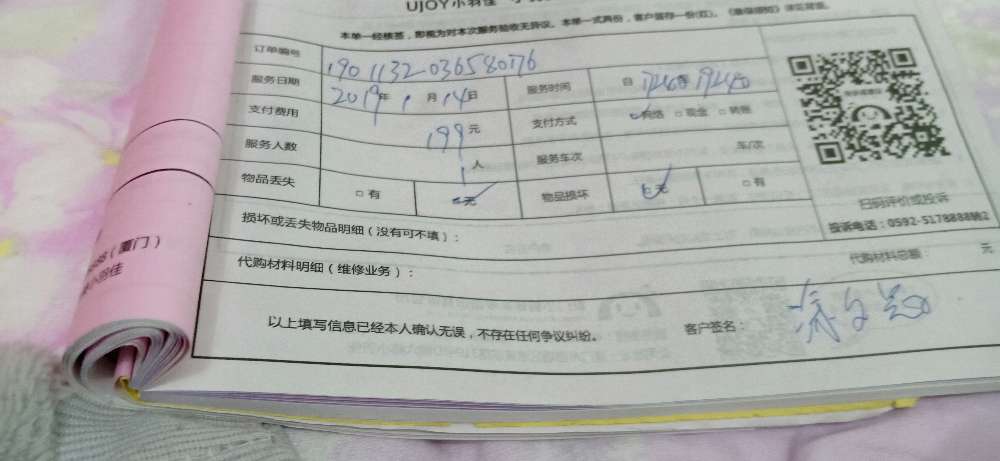 UJOY小羽佳
本单一经核签，即视为对本次服务验收无异议。本单一式两份，客户留存一份(红)。
订单编号 1901132036580176
服务日期 2019年1月14日 服务时间 自
支付费用 199元 支付方式 网络 □ 现金 □ 转账
服务人数 1人 服务车次 车/次
物品丢失 □ 有 无 物品损坏 无 □ 有
扫码评价或投诉
损坏或丢失物品明细（没有可不填）：
投诉电话：0592-5178888转2
（厦门）
小羽佳
代购材料明细（维修业务）： 代购材料总额： 元
以上填写信息已经本人确认无误，不存在任何争议纠纷。 客户签名：